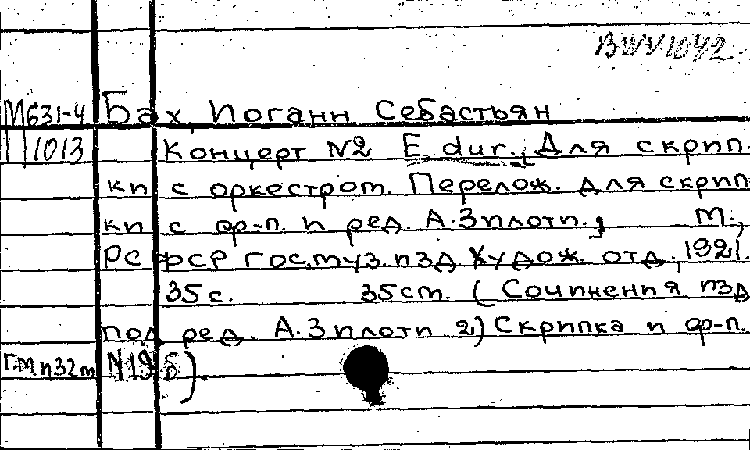 BWV1042
М631-4 Бах, Иоганн Себастьян
1013 Концерт N2 E dur. Для скрип.
ки с оркестром. Перелож. для скрип
ки с ф-п. и ред. А. Зилоти., М.,
РСФСР Гос. муз. изд. Худож. отд., 1921.
35 с. 35 см. (Сочинения изд
под ред. А. Зилоти 2) Скрипка и ф-п.
N19 б).